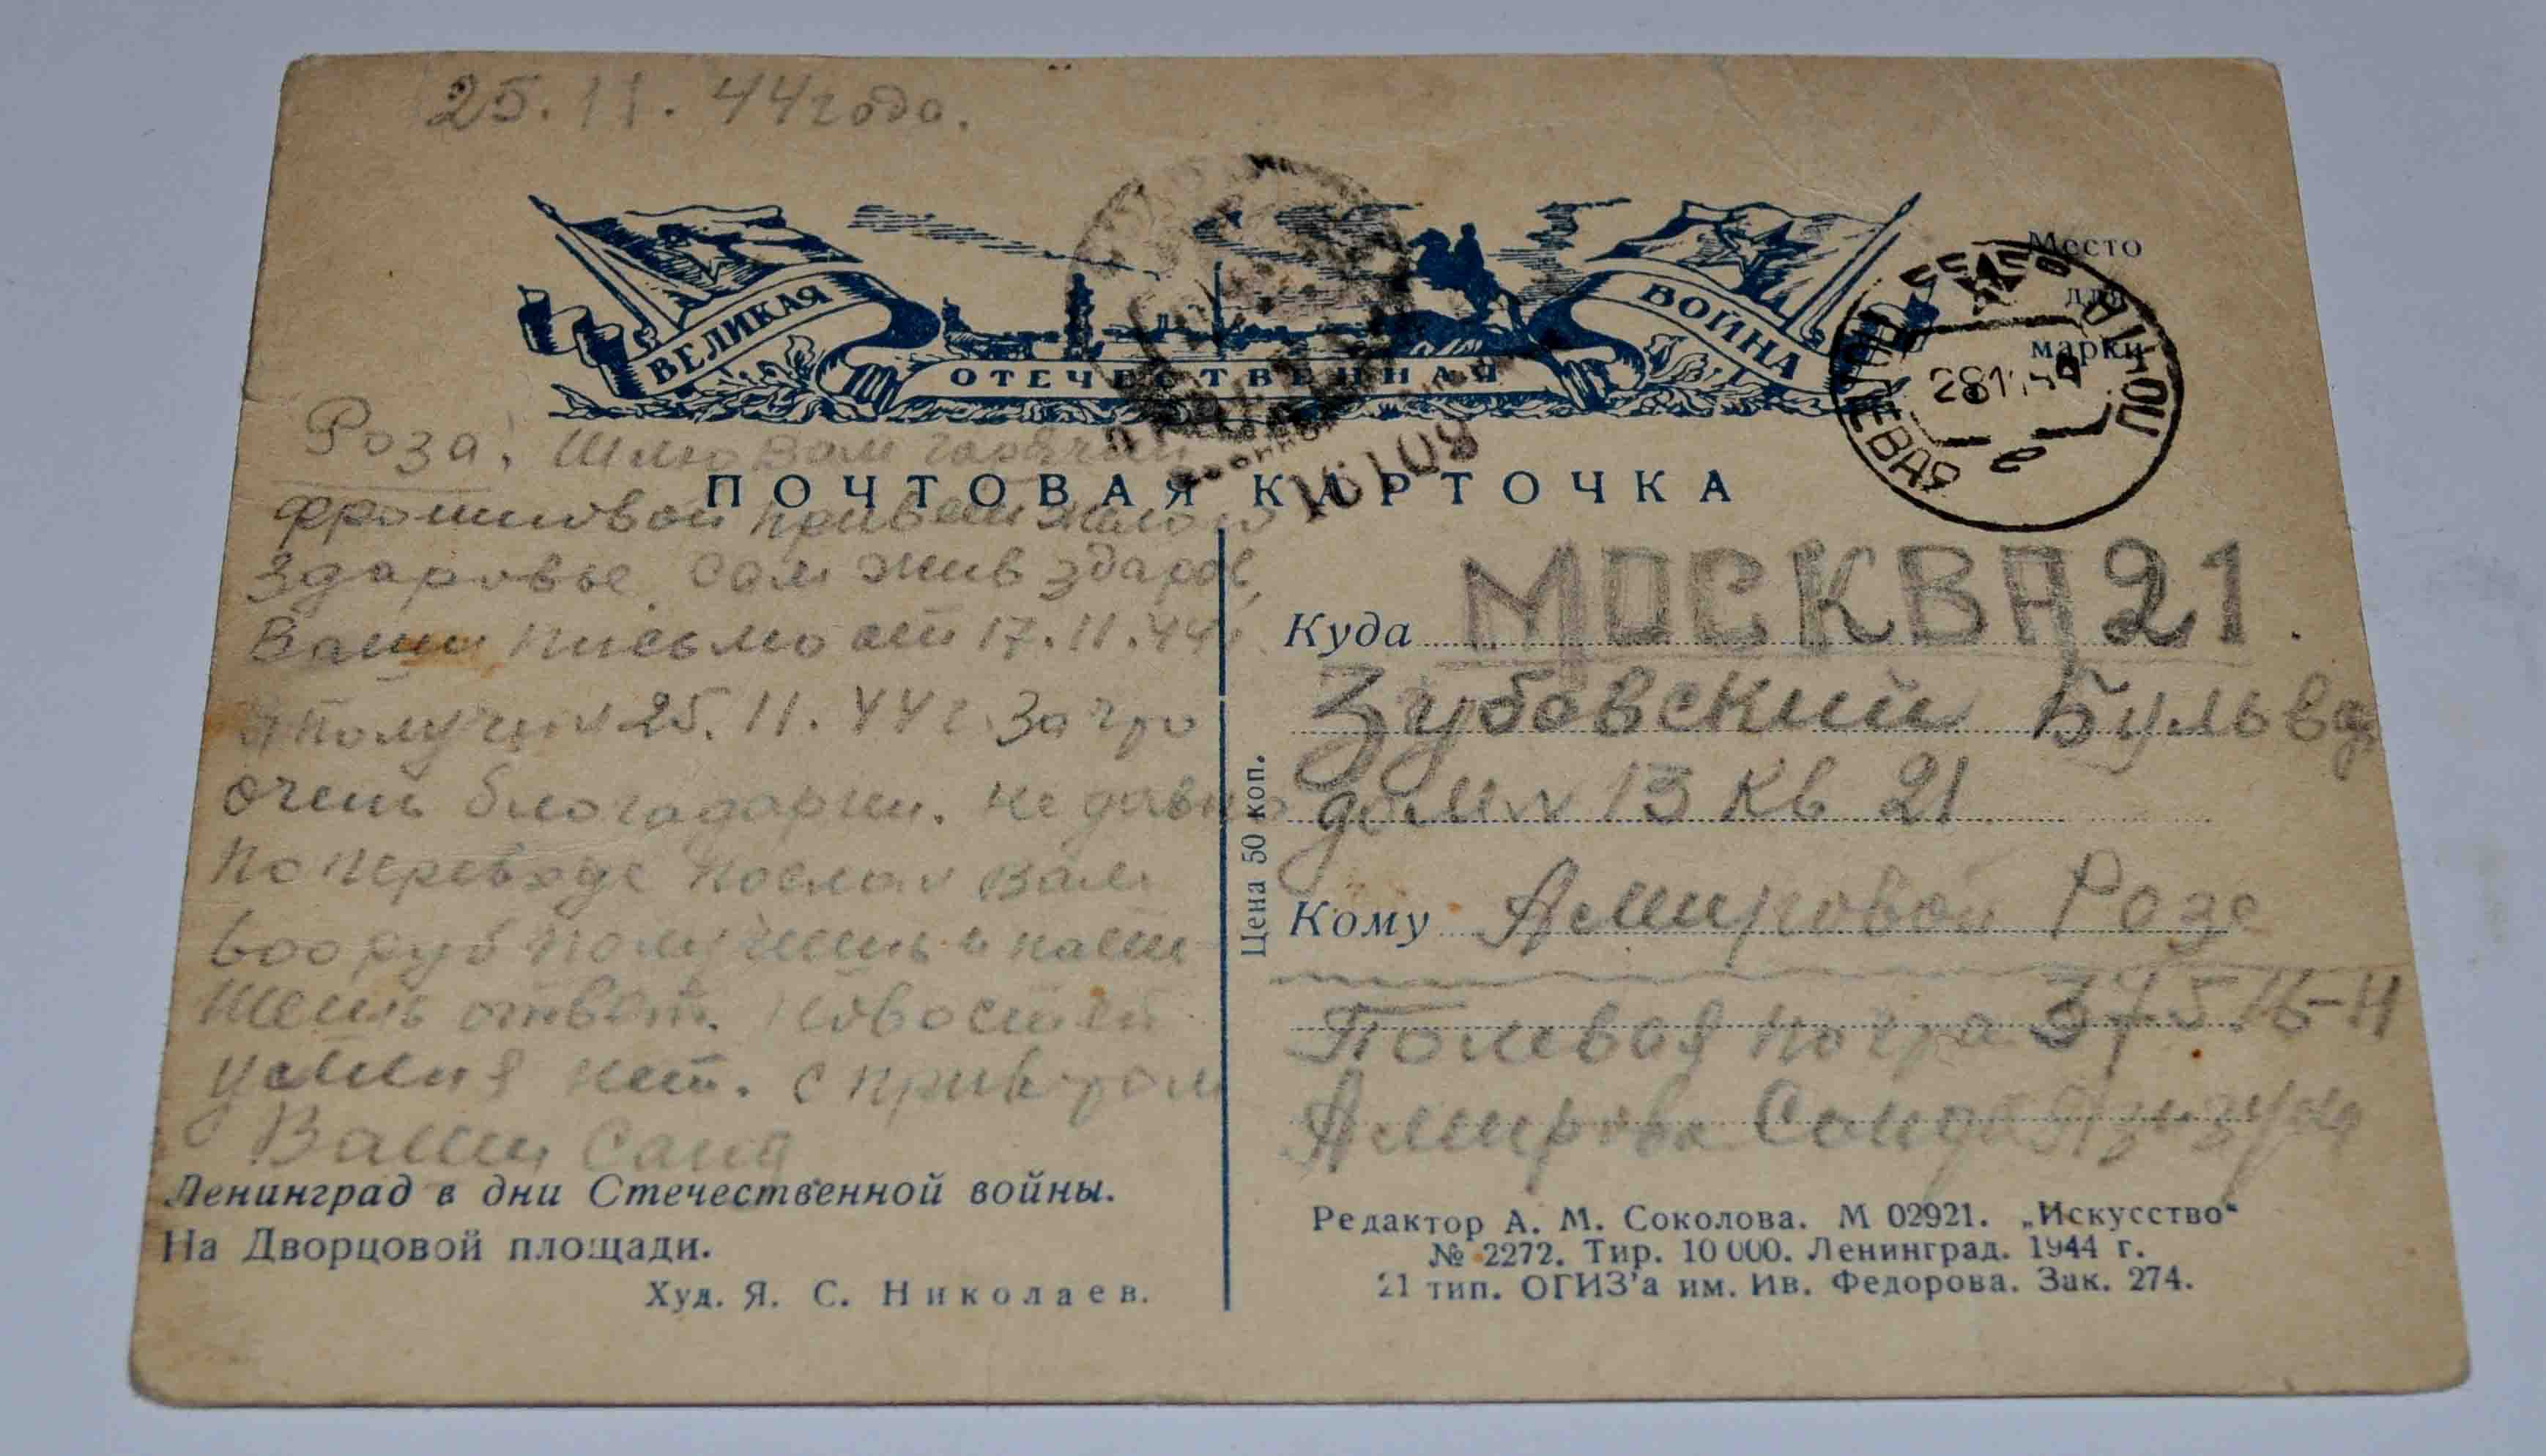 25.11.44 года.
ВЕЛИКАЯ
ОТЕЧЕСТВЕННАЯ
ВОЙНА
Место
для
марки
28 11 44
ПОЛЕВАЯ ПОЧТА
ПОЧТОВАЯ КАРТОЧКА
Роза! Шлю Вам горячий
фронтовой привет желаю
здаровье. Сам жив здаров,
Ваши письмо от 17.11.44г
Я получил 25.11.44г. За что
очень благадарил. Не давно
По переводе послал Вам
600 руб получишь и напи
шешь ответ. Новостей
у меня нет. С приветом
Ваши Саид
Ленинград в дни Отечественной войны.
На Дворцовой площади.
Худ. Я. С. Николаев.
Цена 50 коп.
Куда МОСКВА 21
Зубовский Бульвар
дом N 13 Кв 21
Кому Амировой Розе
Полевая почта 37516-Н
Амирова Саида
Редактор А. М. Соколова. М 02921. „Искусство“
№ 2272. Тир. 10 000. Ленинград. 1944 г.
21 тип. ОГИЗ'а им. Ив. Федорова. Зак. 274.